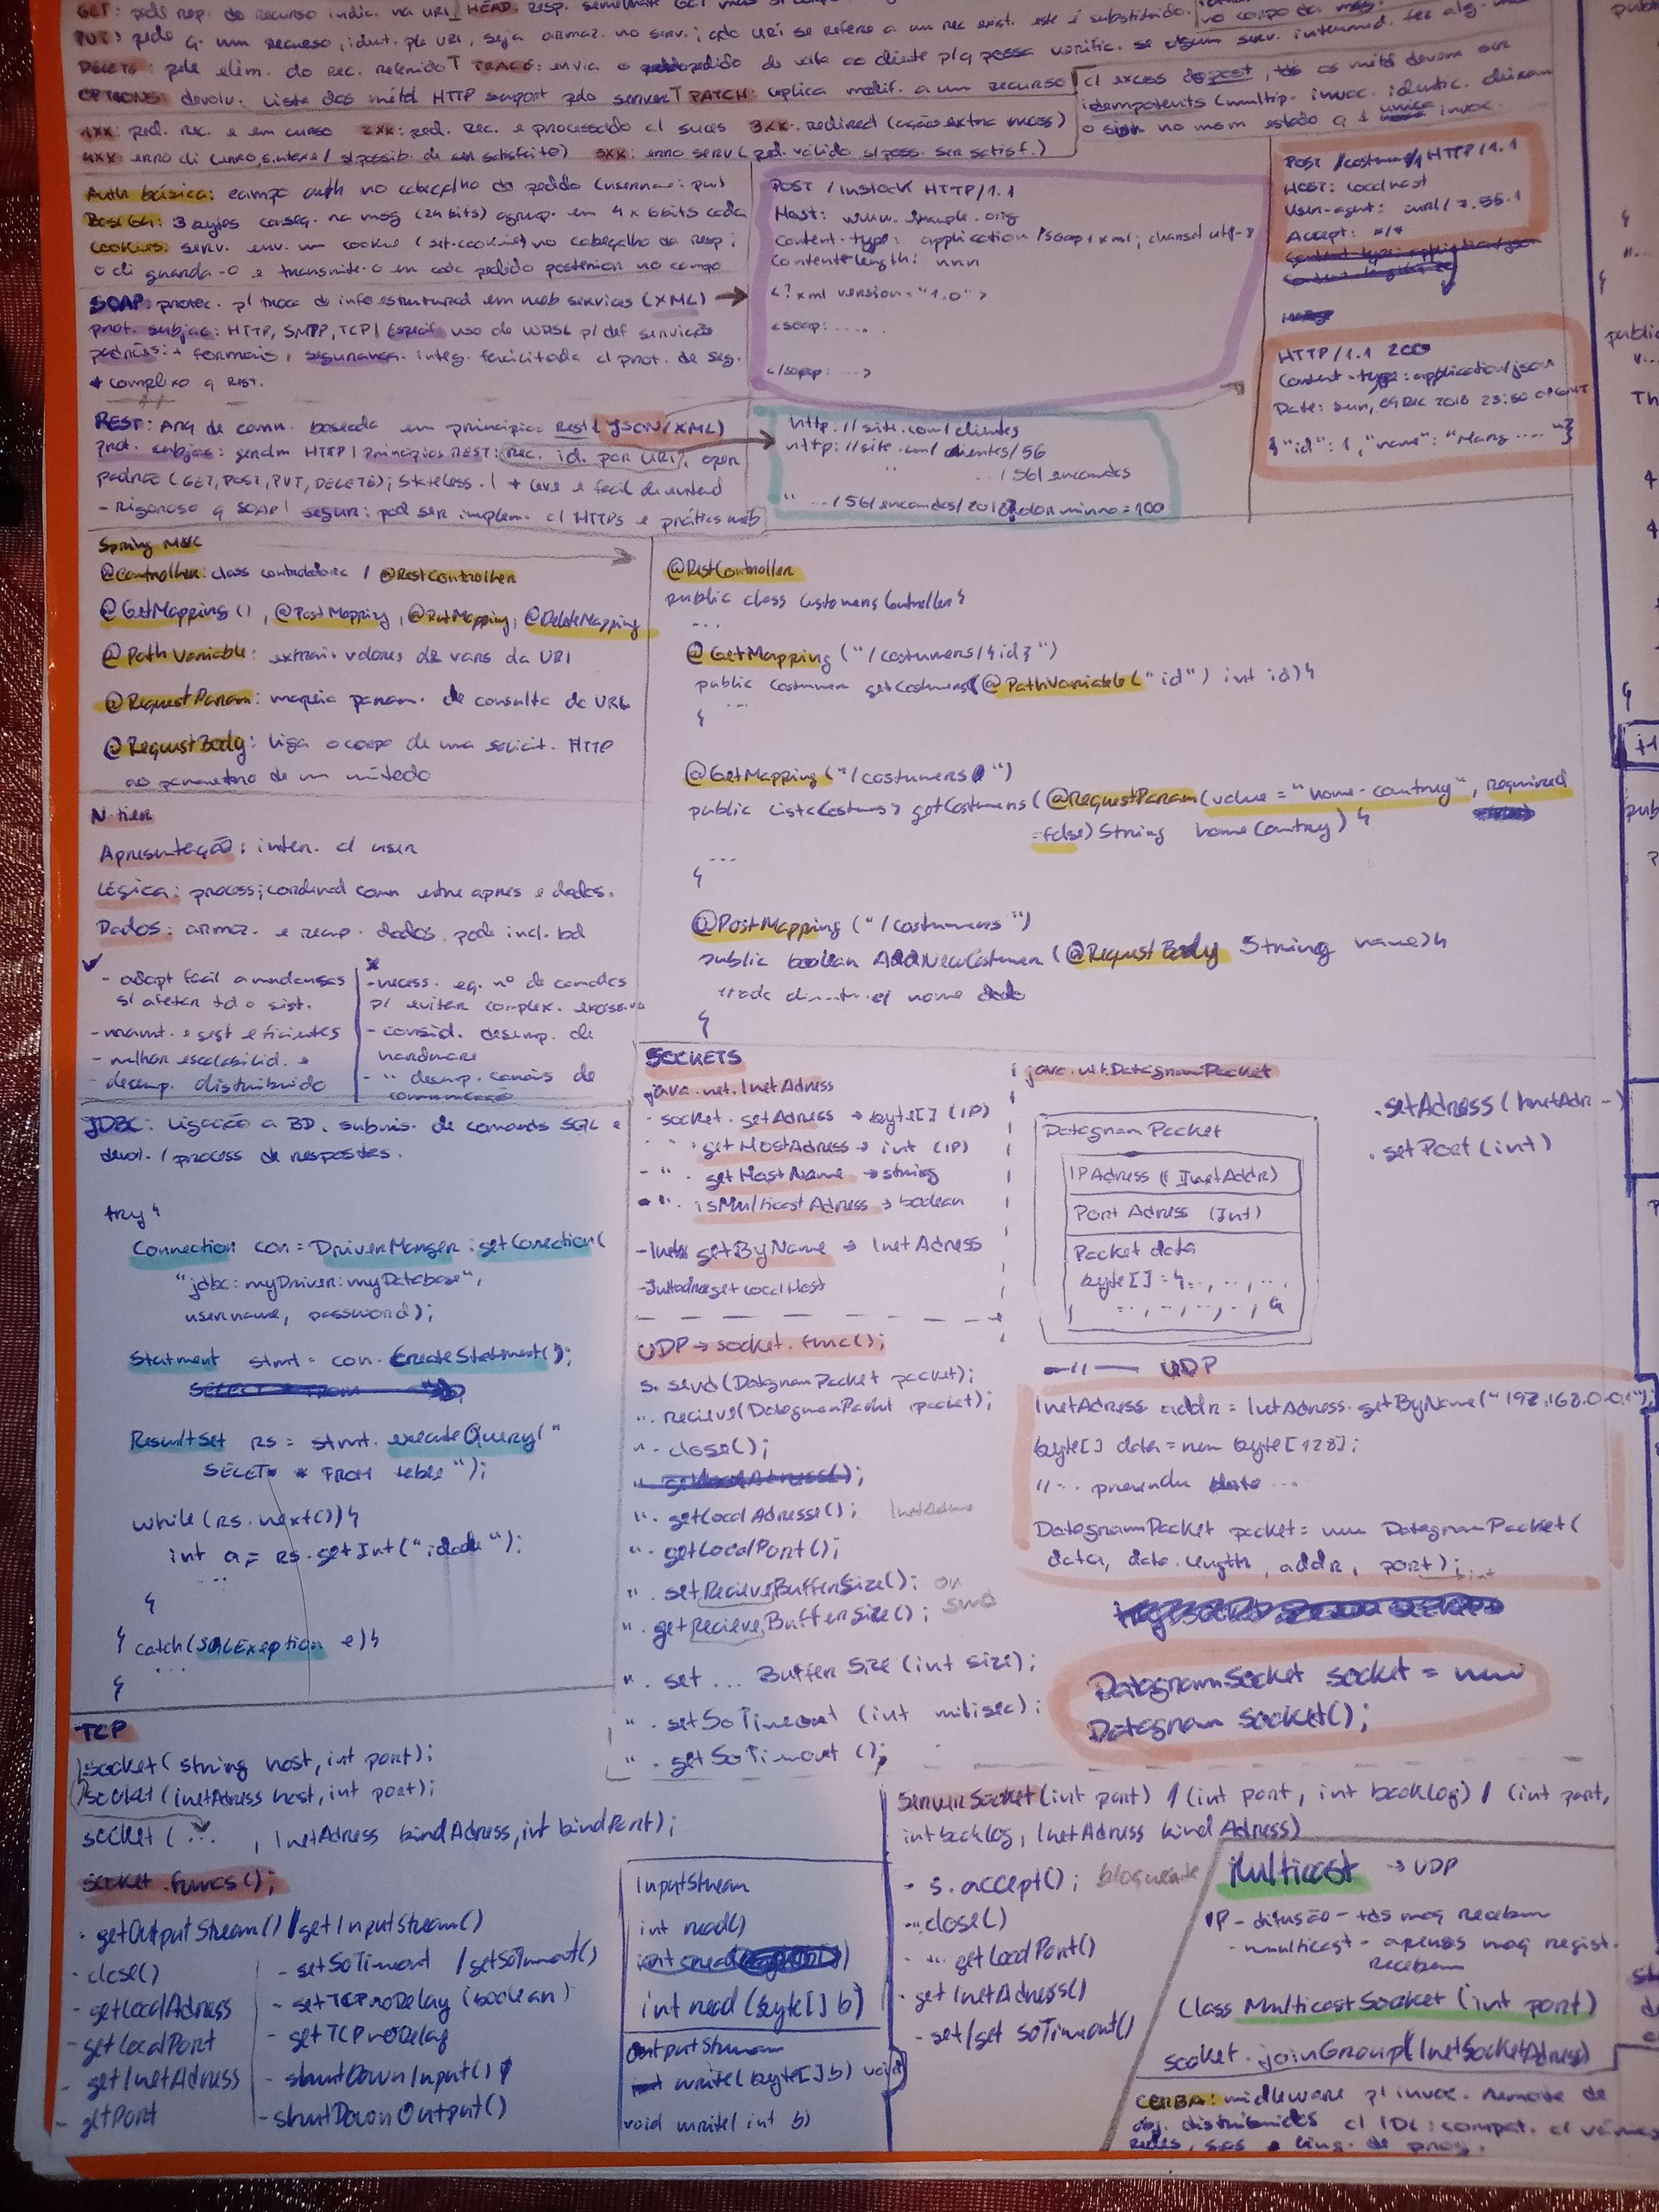 GET: pede rep. do recurso indic. na URI HEAD: resp. semelhante GET mas s/
no corpo da msg.
PUT: pede q. um recurso, ident. pla URI, seja armaz. no serv.; qdo URI se refere a um rec exist. este é substituido.
DELETE: pede elim. do rec. referido TRACE: envia o pedido de volta ao cliente p/q possa verific. se algum serv. intermed. fez alg.
OPTIONS: devolv. lista dos métd HTTP suport pelo server PATCH: aplica modif. a um recurso
c/ excess do post, tds os métd devem ser
idempotents (multip. invoc. identic. deixam
o sist no msm estado q 1 unica invoc.
1XX: ped. rec. e em curso 2XX: ped. rec. e processado c/ suces 3XX: redirect (ação extra necess)
4XX erro cli (erro sintaxe / s/possib. de ser satisfeito) 5XX: erro serv (ped. válido s/poss. ser satisf.)
Auth básica: campo auth no cabeçalho do pedido (username: pw)
Base 64: 3 bytes conseq. na msg (24 bits) agrup. em 4 x 6bits cada
Cookies: serv. env. um cookie (set-cookie) no cabeçalho da resp;
o cli guarda-o e transmite-o em cada pedido posterior no campo
SOAP: protoc. p/ troca de info estruturad em web services (XML) →
prot. subjac: HTTP, SMPP, TCP | Especif. uso de WDSL p/ def serviços
padrões: + formais, segurança: integ. facilitada c/ prot. de seg.
+ complexo q Rest.
REST: Arq de comn. baseada em principios Rest (JSON/XML)
prot. subjac: geralm HTTP | Principios REST: rec. id. por URI, oper
padrão (GET, POST, PUT, DELETE); stateless. | + leve e facil de entend
- rigoroso q SOAP | segur: pod ser implem. c/ HTTPs e prátics web
POST /InStock HTTP/1.1
Host: www.example.org
Content-type: application/soap+xml; charset utf-8
Content-Length: nnn
<?xml version="1.0">
<soap: .....
</soap: ...>
http://site.com/clientes
http://site.com/clientes/56
" .../56/encomdes
" .../56/encomdes/201?valor minimo=100
POST /costumer/1 HTTP/1.1
HOST: localhost
User-agent: curl/7.55.1
Accept: */*
HTTP/1.1 200
Content-type: application/json
Date: Sun, 09 Dec 2018 23:50 GMT
{"id": 1, "name": "Marg ...."}
Spring MVC
@Controller: class controladora / @RestController
@GetMapping(), @PostMapping, @PutMapping, @DeleteMapping
@PathVariable: extrair valores de vars da URI
@RequestParam: mapeia param. de consulta da URL
@RequestBody: liga o corpo de uma solicit. HTTP
ao parametro de um método
@RestController
public class CustomersController {
...
@GetMapping("/costumers/{id}")
public Costumer getCostumer(@PathVariable("id") int id) {
...
}
@GetMapping("/costumers")
public List<Costum> getCostumers(@RequestParam(value = "home-country", required
=false) String homeCountry) {
...
}
@PostMapping("/costumers")
public boolean AddNewCostumer(@RequestBody String name) {
}
N-tier
Apresentação: inter. c/ user
Lógica: process; coordenad comn entre apres e dados.
Dados: armaz. e recup. dados. pode incl. bd
- adapt fácil a mudanças
s/ afetar td o sist.
- manut. e gest eficientes
- melhor escalabilid. e
desemp. distribuido
x
- necess. eq. nº de camadas
p/ evitar complex. excessiva
- consid. desemp. de
hardware
- " desemp. canais de
comunicação
JDBC: Ligação a BD, submis. de comandos SQL e
devol./process de respostas.
try {
Connection con = DriverManger.getConection(
"jdbc:myDriver:myDatabase",
username, password);
Statment stmt = con.CreateStatment();
ResultSet rs = stmt.executeQuery("
SELET * FROM table");
while(rs.next()) {
int a = rs.getInt("idade");
...
}
} catch(SQLExeption e) {
...
}
SOCKETS
java.net.InetAdress
- socket.getAdress → byte[] (IP)
- " getHostAdress → int (IP)
- " getHostName → string
- " isMulticastAdress → boolean
- Inet getByName → InetAdress
- InetAdress getLocalHost
java.net.DatagramPacket
Datagram Packet
IP Adress (InetAddr)
Port Adress (Int)
Packet data
byte[] = {.., .., ..,
.., .., .., .., }
.setAdress(InetAdr-)
.setPort(int)
UDP → socket.func();
s.send(DatagramPacket packet);
".recieve(DatagramPacket packet);
".close();
".getLocalAdresse(); InetAdress
".getLocalPort();
".setRecieveBufferSize(); or
".getRecieveBufferSize(); send
".set ... Buffer Size (int size);
".setSoTimeout (int milisec);
".getSoTimeout ();
—"— UDP
InetAdress addr = InetAdress.getByName("192.168.0.01");
byte[] data = new byte[128];
//.. preencher data ...
DatagramPacket packet = new DatagramPacket(
data, data.length, addr, port); int
DatagramSocket socket = new
DatagramSocket();
TCP
Socket(string host, int port);
Socket(inetAdress host, int port);
socket( ... , InetAdress bindAdress, int bindPort);
socket.funcs();
- getOutputStream() / getInputStream()
- close()
- getLocalAdress
- getLocalPort
- getInetAdress
- getPort
- setSoTimeout / getSoTimout()
- setTCPnoDelay (boolean)
- getTCPnoDelay
- shuntDownInput()
- shutDownOutput()
InputStream
int read()
int read(byte[] b)
OutputStream
write(byte[] b) void
void write(int b)
ServerSocket(int port) / (int port, int backlog) / (int port,
int backlog, InetAdress bindAdress)
- s.accept(); bloqueante
-".close()
- ".getLocalPort()
- getInetAdress()
- set/get SoTimeout()
Multicast → UDP
IP - difusão - tds maq recebem
- multicast - apenas maq regist.
recebem
Class MulticastSocket (int port)
socket.joinGroup(InetSocketAdress)
CORBA: middleware p/ invoc. remota de
obj. distribuidos c/ IDL: compat. c/ várias
redes, sos e ling. de prog.